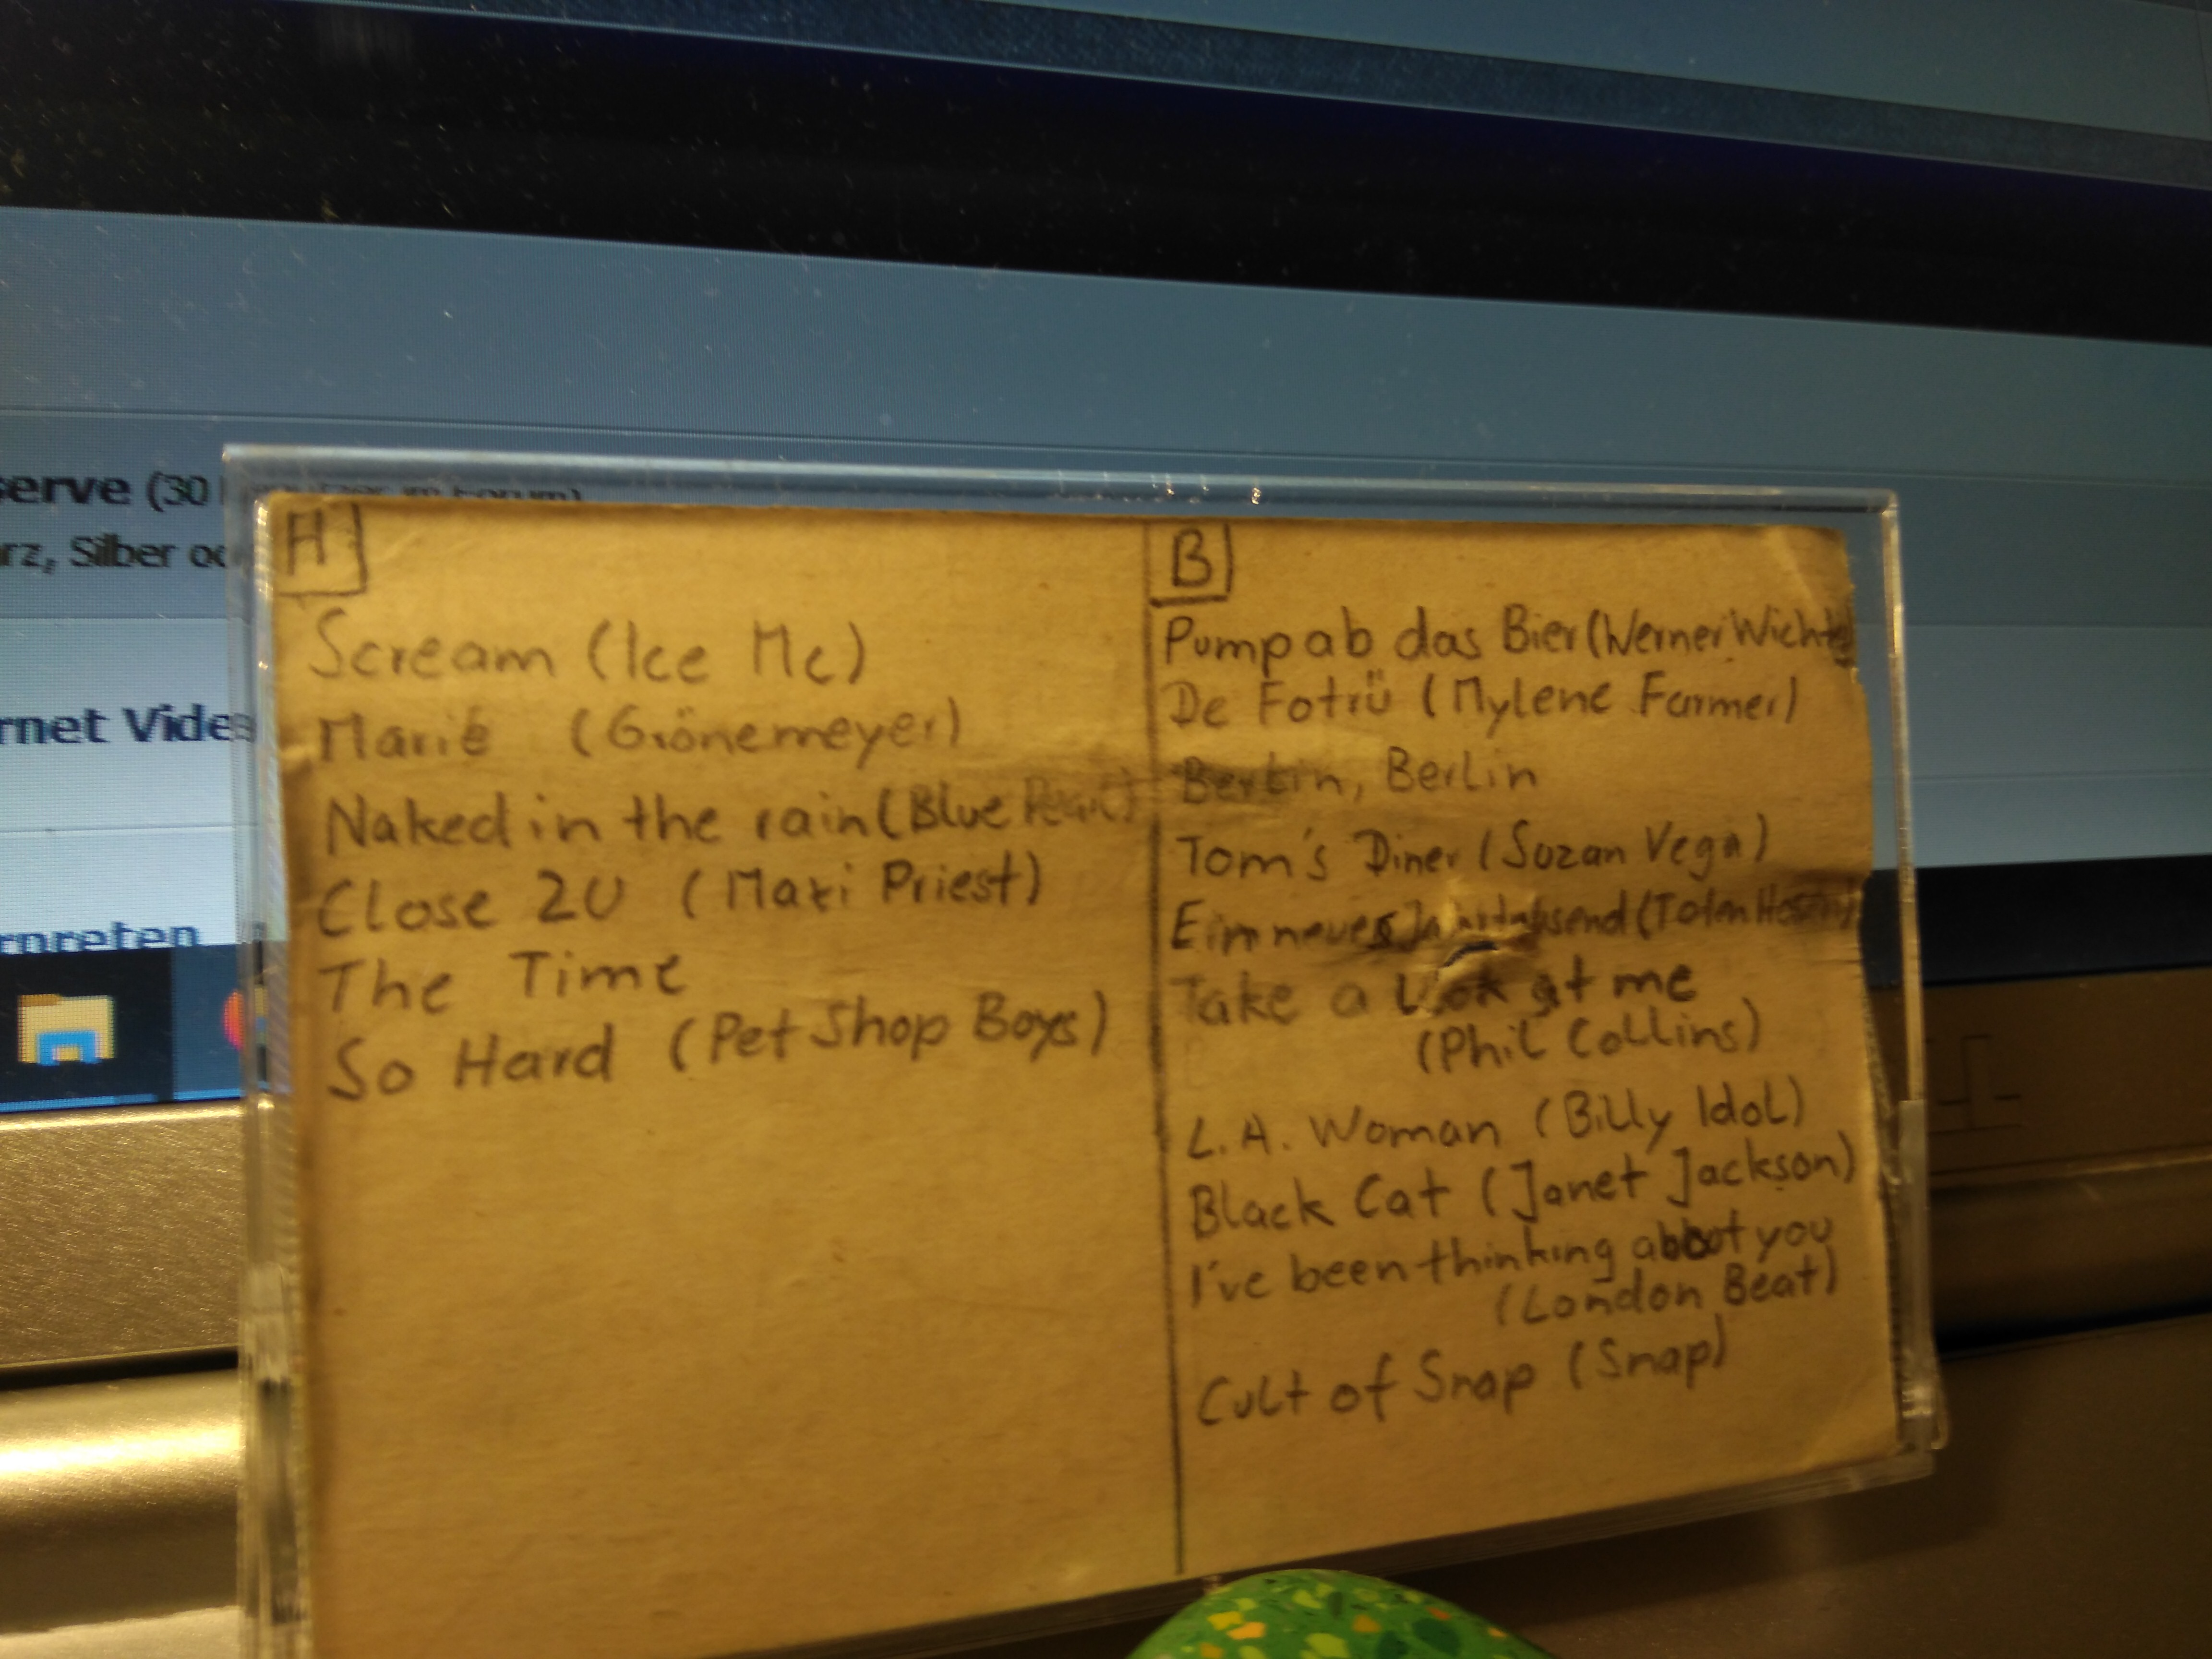 serve (30
rz, Silber oc
rnet Vide
rpreten
A
Scream (Ice Mc)
Marie (Grönemeyer)
Naked in the rain (Blue Pearl)
Close 2U (Maxi Priest)
The Time
So Hard (Pet Shop Boys)
B
Pump ab das Bier (Werner Wichtig
De Fotrü (Mylene Farmer)
Berlin, Berlin
Tom's Diner (Suzan Vega)
Ein neues (Toten
Take a look at me
(Phil Collins)
L.A. Woman (Billy Idol)
Black Cat (Janet Jackson)
I've been thinking about you
(London Beat)
Cult of Snap (Snap)